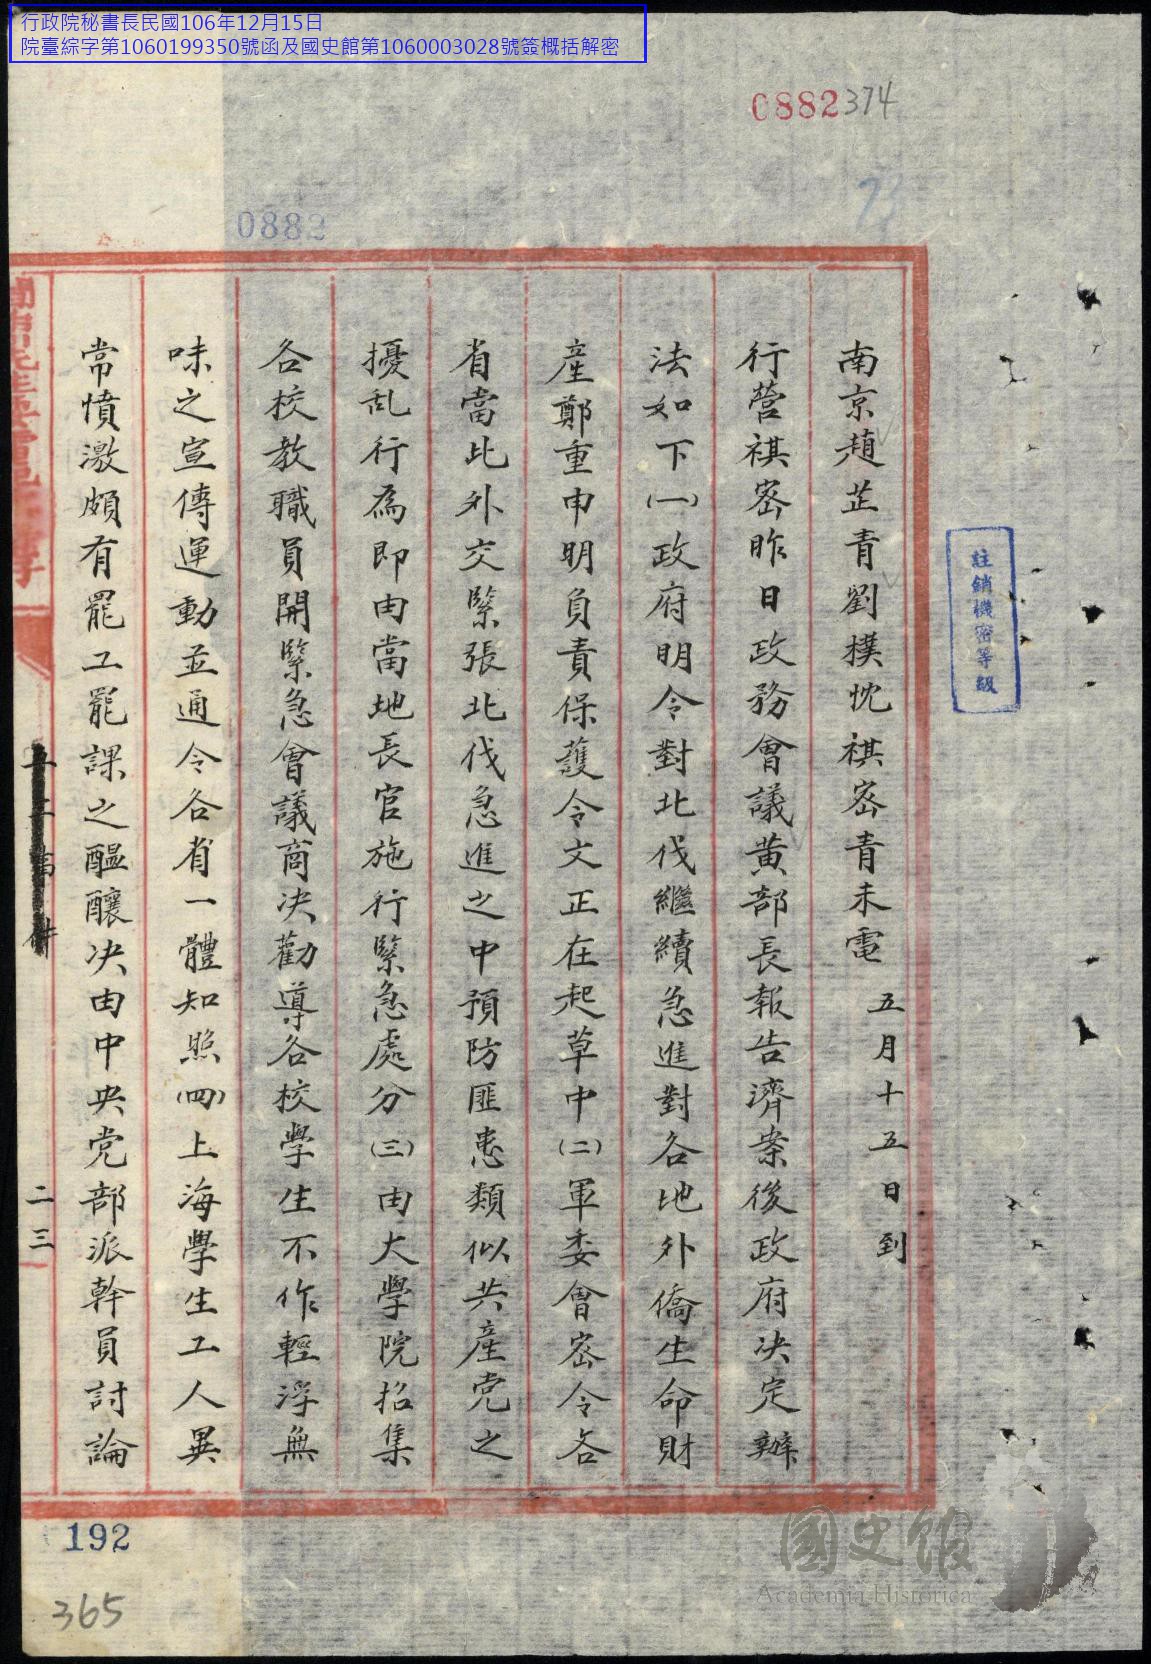 行政院秘書長民國106年12月15日
院臺綜字第1060199350號函及國史館第1060003028號簽概括解密
0882
374
73
0882
註銷機密等級
南京趙芷青劉樸忱祺密青未電　五月十五日到
行營祺密昨日政務會議黃部長報告濟案後政府決定辦
法如下(一)政府明令對北伐繼續急進對各地外僑生命財
產鄭重申明負責保護令文正在起草中(二)軍委會密令各
省當此外交緊張北伐急進之中預防匪患類似共產党之
擾乱行為即由當地長官施行緊急處分(三)由大學院招集
各校教職員開緊急會議商決勸導各校學生不作輕浮無
味之宣傳運動並通令各省一體知照(四)上海學生工人異
常憤激頗有罷工罷課之醞釀決由中央党部派幹員討論
二三
192
365
國史館
Academia Historica